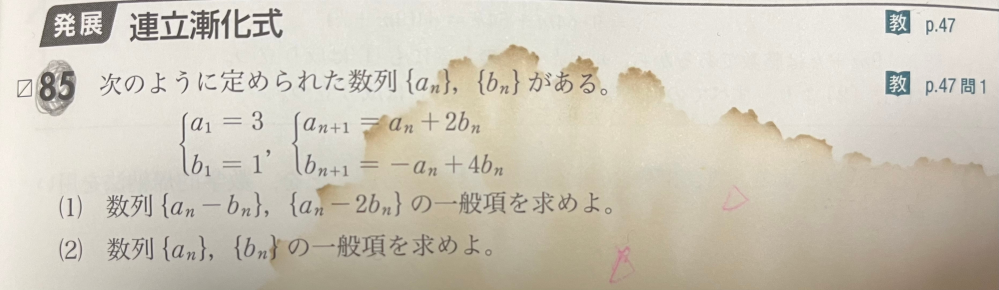 発展 連立漸化式 教 p.47
85 次のように定められた数列{aₙ}, {bₙ}がある。 教 p.47 問1
{a₁ = 3 {aₙ₊₁ = aₙ + 2bₙ
{b₁ = 1, {bₙ₊₁ = −aₙ + 4bₙ
(1) 数列{aₙ − bₙ}, {aₙ − 2bₙ}の一般項を求めよ。
(2) 数列{aₙ}, {bₙ}の一般項を求めよ。